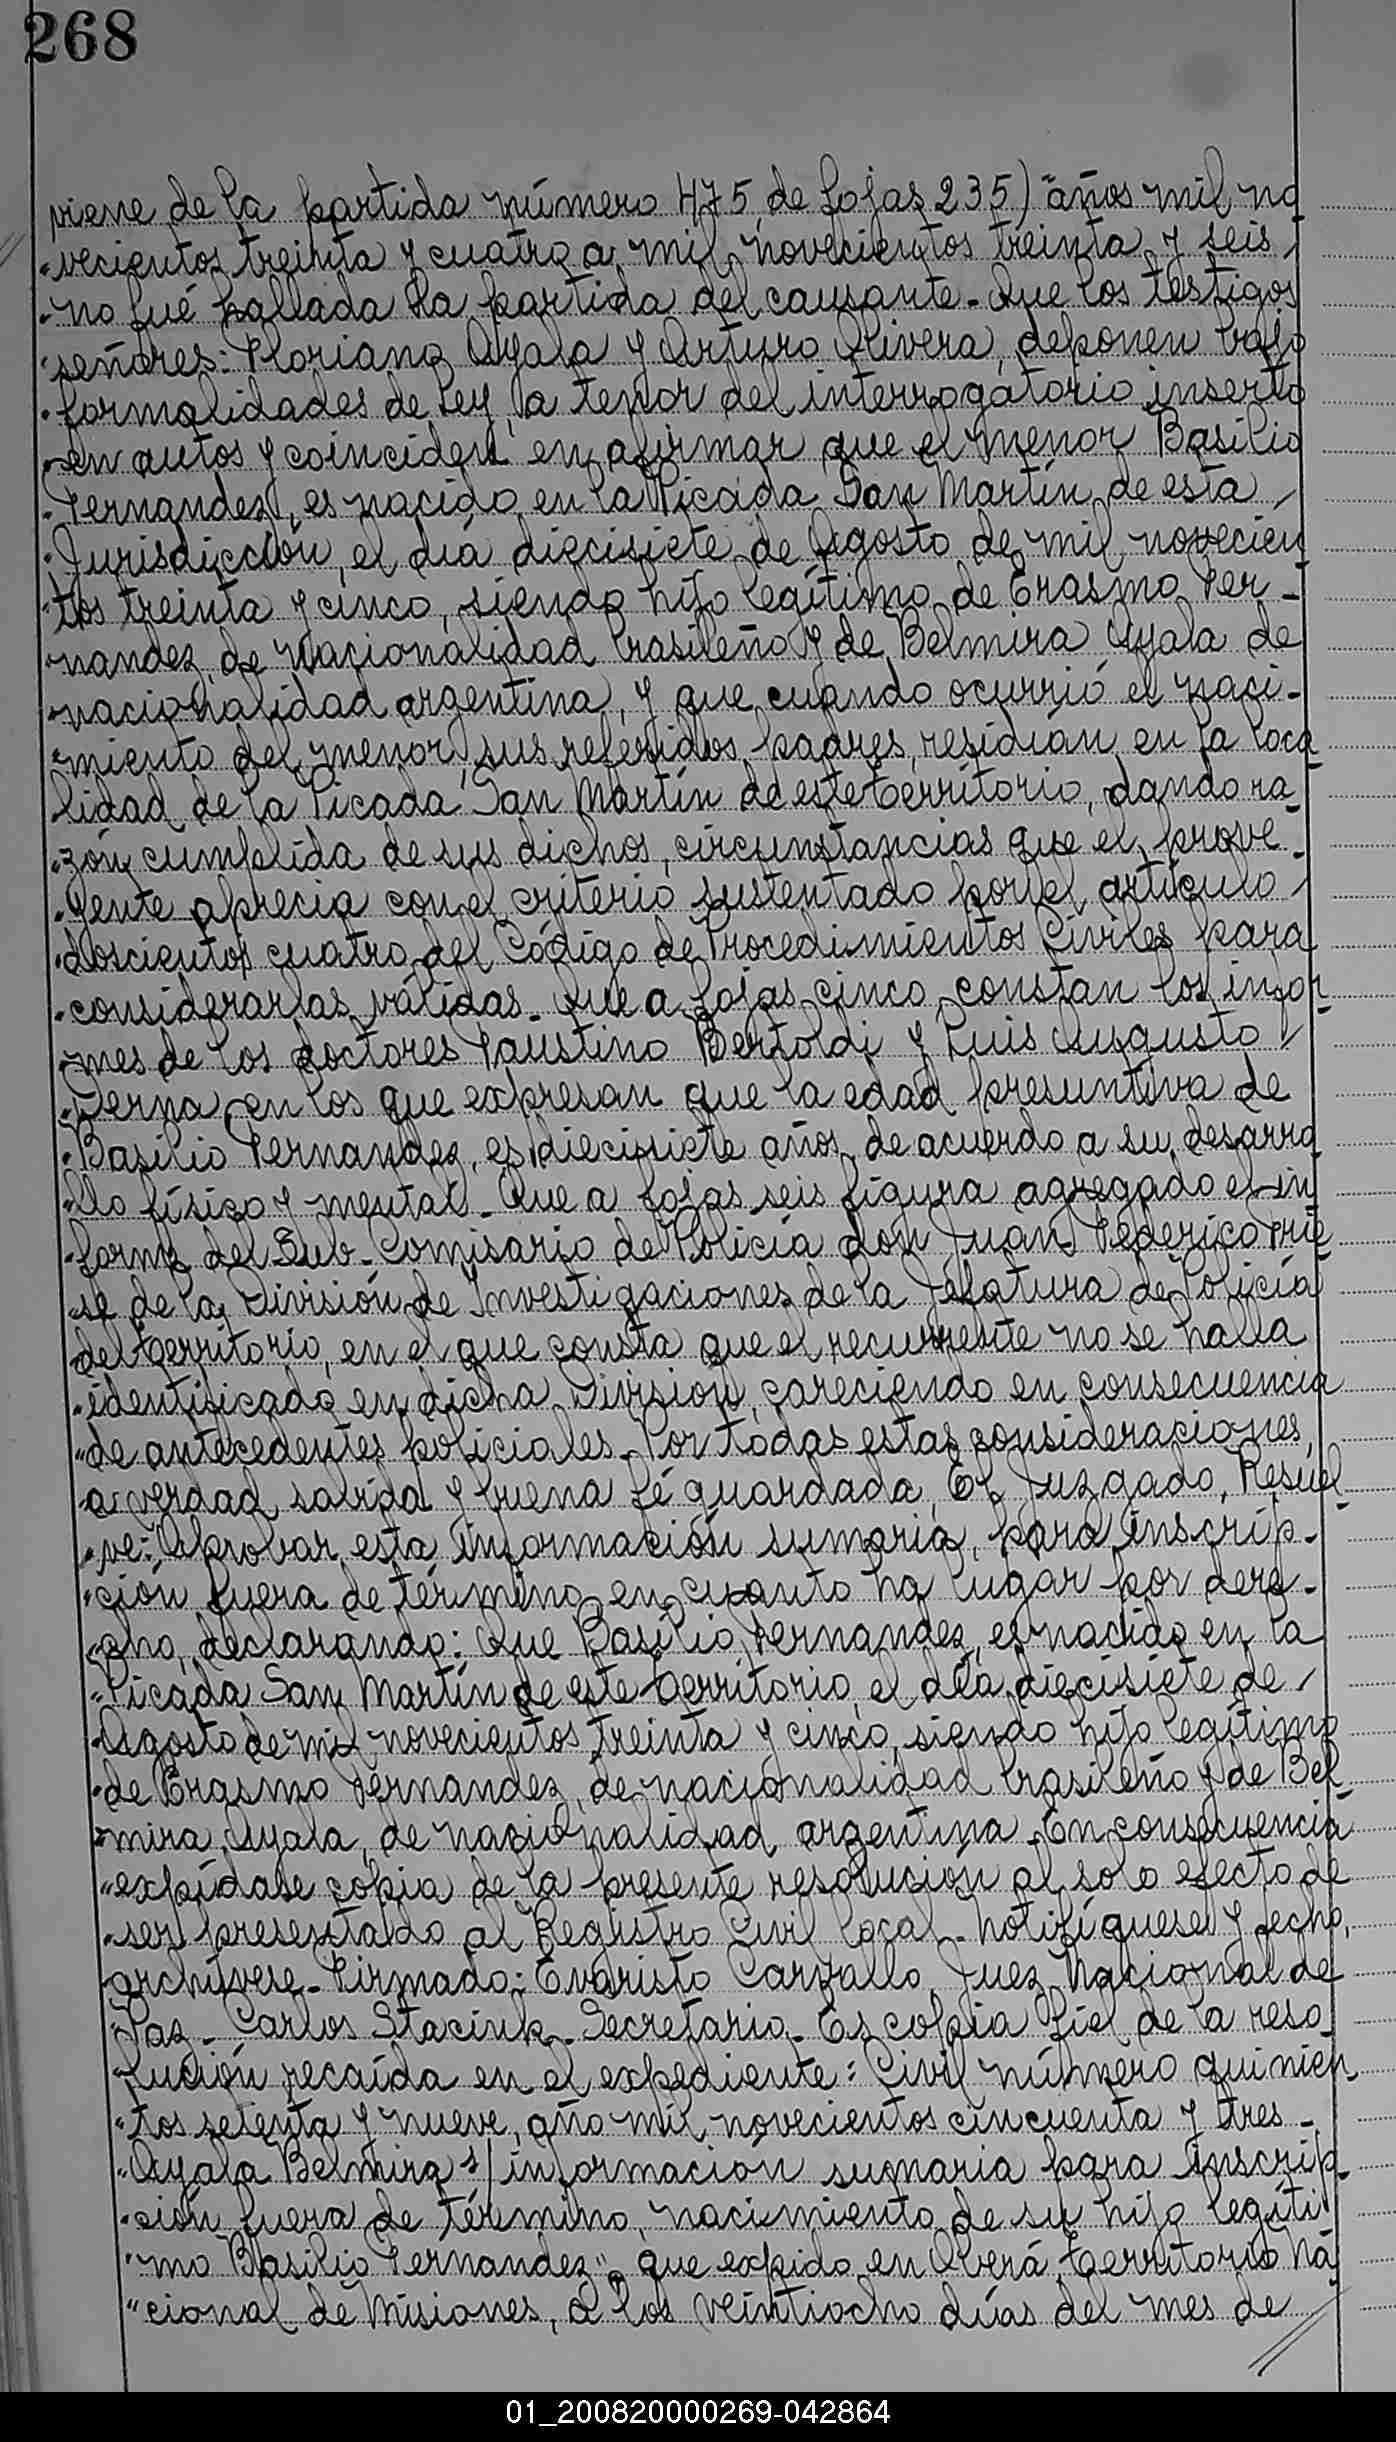 268
viene de la partida número 475 de fojas 235) "años mil no
"vecientos treinta y cuatro a mil novecientos treinta y seis
"no fué hallada la partida del causante. Que los testigos
"señores: Floriano Ayala y Arturo Olivera, deponen bajo
"formalidades de Ley, a tenor del interrogatorio inserto
"en autos y coinciden en afirmar que el menor Basilio
"Fernandez, es nacido en la Picada San Martín de esta
"Jurisdicción, el día diecisiete de Agosto de mil novecien
"tos treinta y cinco, siendo hijo legítimo de Erasmo Fer-
"nandez, de nacionalidad brasileño y de Belmira Ayala de
"nacionalidad argentina, y que cuando ocurrió el naci-
"miento del menor, sus referidos padres, residían en la loca
lidad de la Picada San Martín de este territorio, dando ra
"zón cumplida de sus dichos, circunstancias que el prove-
"yente aprecia con el criterio sustentado por el artículo
"doscientos cuatro del Código de Procedimientos Civiles para
"considerarlas válidas. Que a fojas cinco constan los infor
"mes de los doctores Faustino Bertoldi y Luis Augusto
"Derna, en los que expresan que la edad presuntiva de
"Basilio Fernandez, es diecisiete años, de acuerdo a su desarro
"llo físico y mental. Que a fojas seis figura agregado el in
"forme del Sub-Comisario de Policía don Juan Federico Frie
"se de la División de Investigaciones de la Jefatura de Policía
del territorio, en el que consta que el recurrente no se halla
"identificado en dicha División, careciendo en consecuencia
"de antecedentes policiales. Por todas estas consideraciones,
a verdad sabida y buena fé guardada, El Juzgado, Resuel
"ve: Aprobar esta información sumaria, para inscrip-
"ción fuera de término en cuanto ha lugar por dere-
"cho, declarando: Que Basilio Fernandez, es nacido en la
"Picada San Martín de este territorio, el día diecisiete de
"Agosto de mil novecientos treinta y cinco, siendo hijo legítimo
"de Erasmo Fernandez, de nacionalidad brasileño y de Bel
"mira Ayala, de nacionalidad argentina. En consecuencia
"expídase copia de la presente resolución al solo efecto de
"ser presentado al Registro Civil local. Notifíquese y fecho,
archívese. Firmado: Evaristo Carvallo, Juez Nacional de
"Paz. Carlos Stacink. Secretario. Es copia fiel de la reso
lución recaída en el expediente: Civil número quinien
"tos setenta y nueve, año mil novecientos cincuenta y tres-
"Ayala Belmira s/ información sumaria para inscrip
"ción fuera de término, nacimiento de su hijo legíti
"mo Basilio Fernandez", que expido en Oberá, territorio Na
"cional de Misiones, a los veintiocho días del mes de
01_200820000269-042864